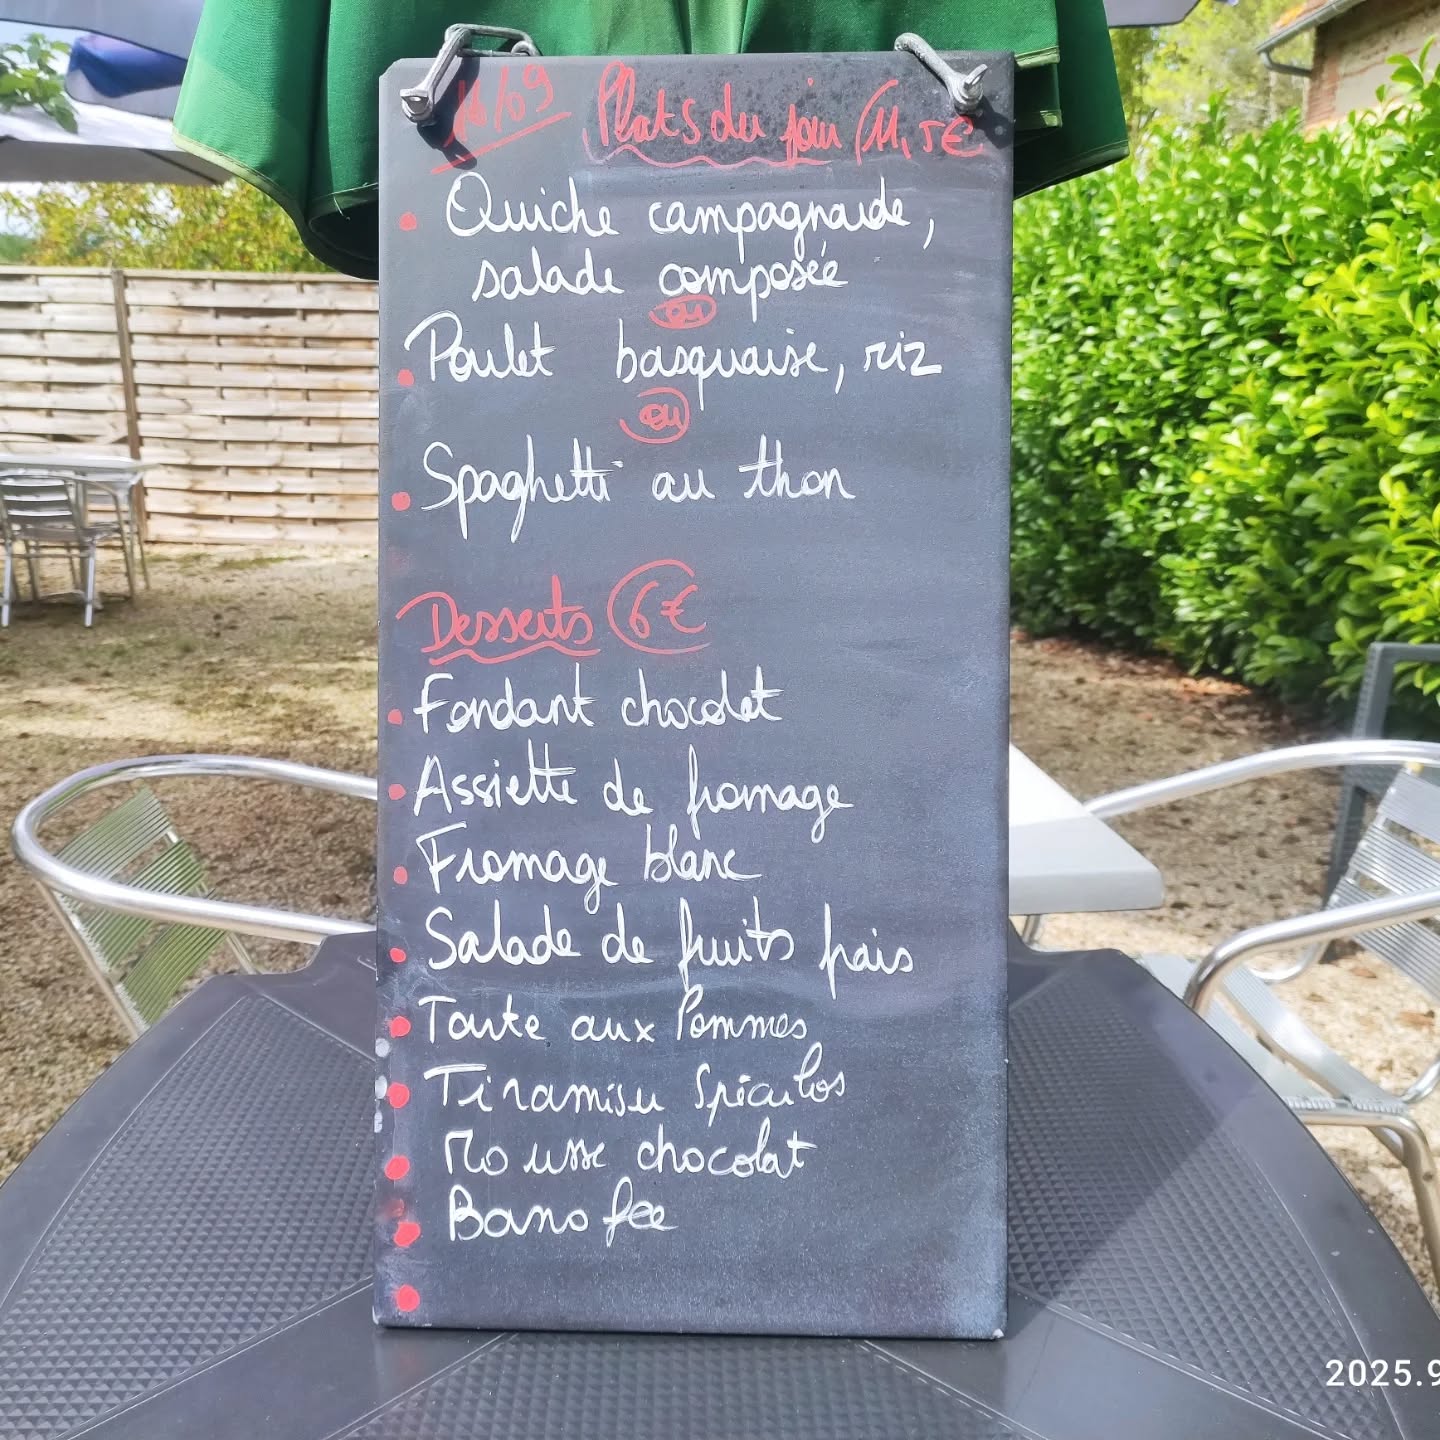 16/09 Plats du jour (11,5€
Quiche campagnarde,
salade composée
ou
Poulet basquaise, riz
ou
Spaghetti au thon
Desserts (6€
Fondant chocolat
Assiette de fromage
Fromage blanc
Salade de fruits frais
Tarte aux Pommes
Tiramisu Spéculos
Mousse chocolat
Banofee
2025.9